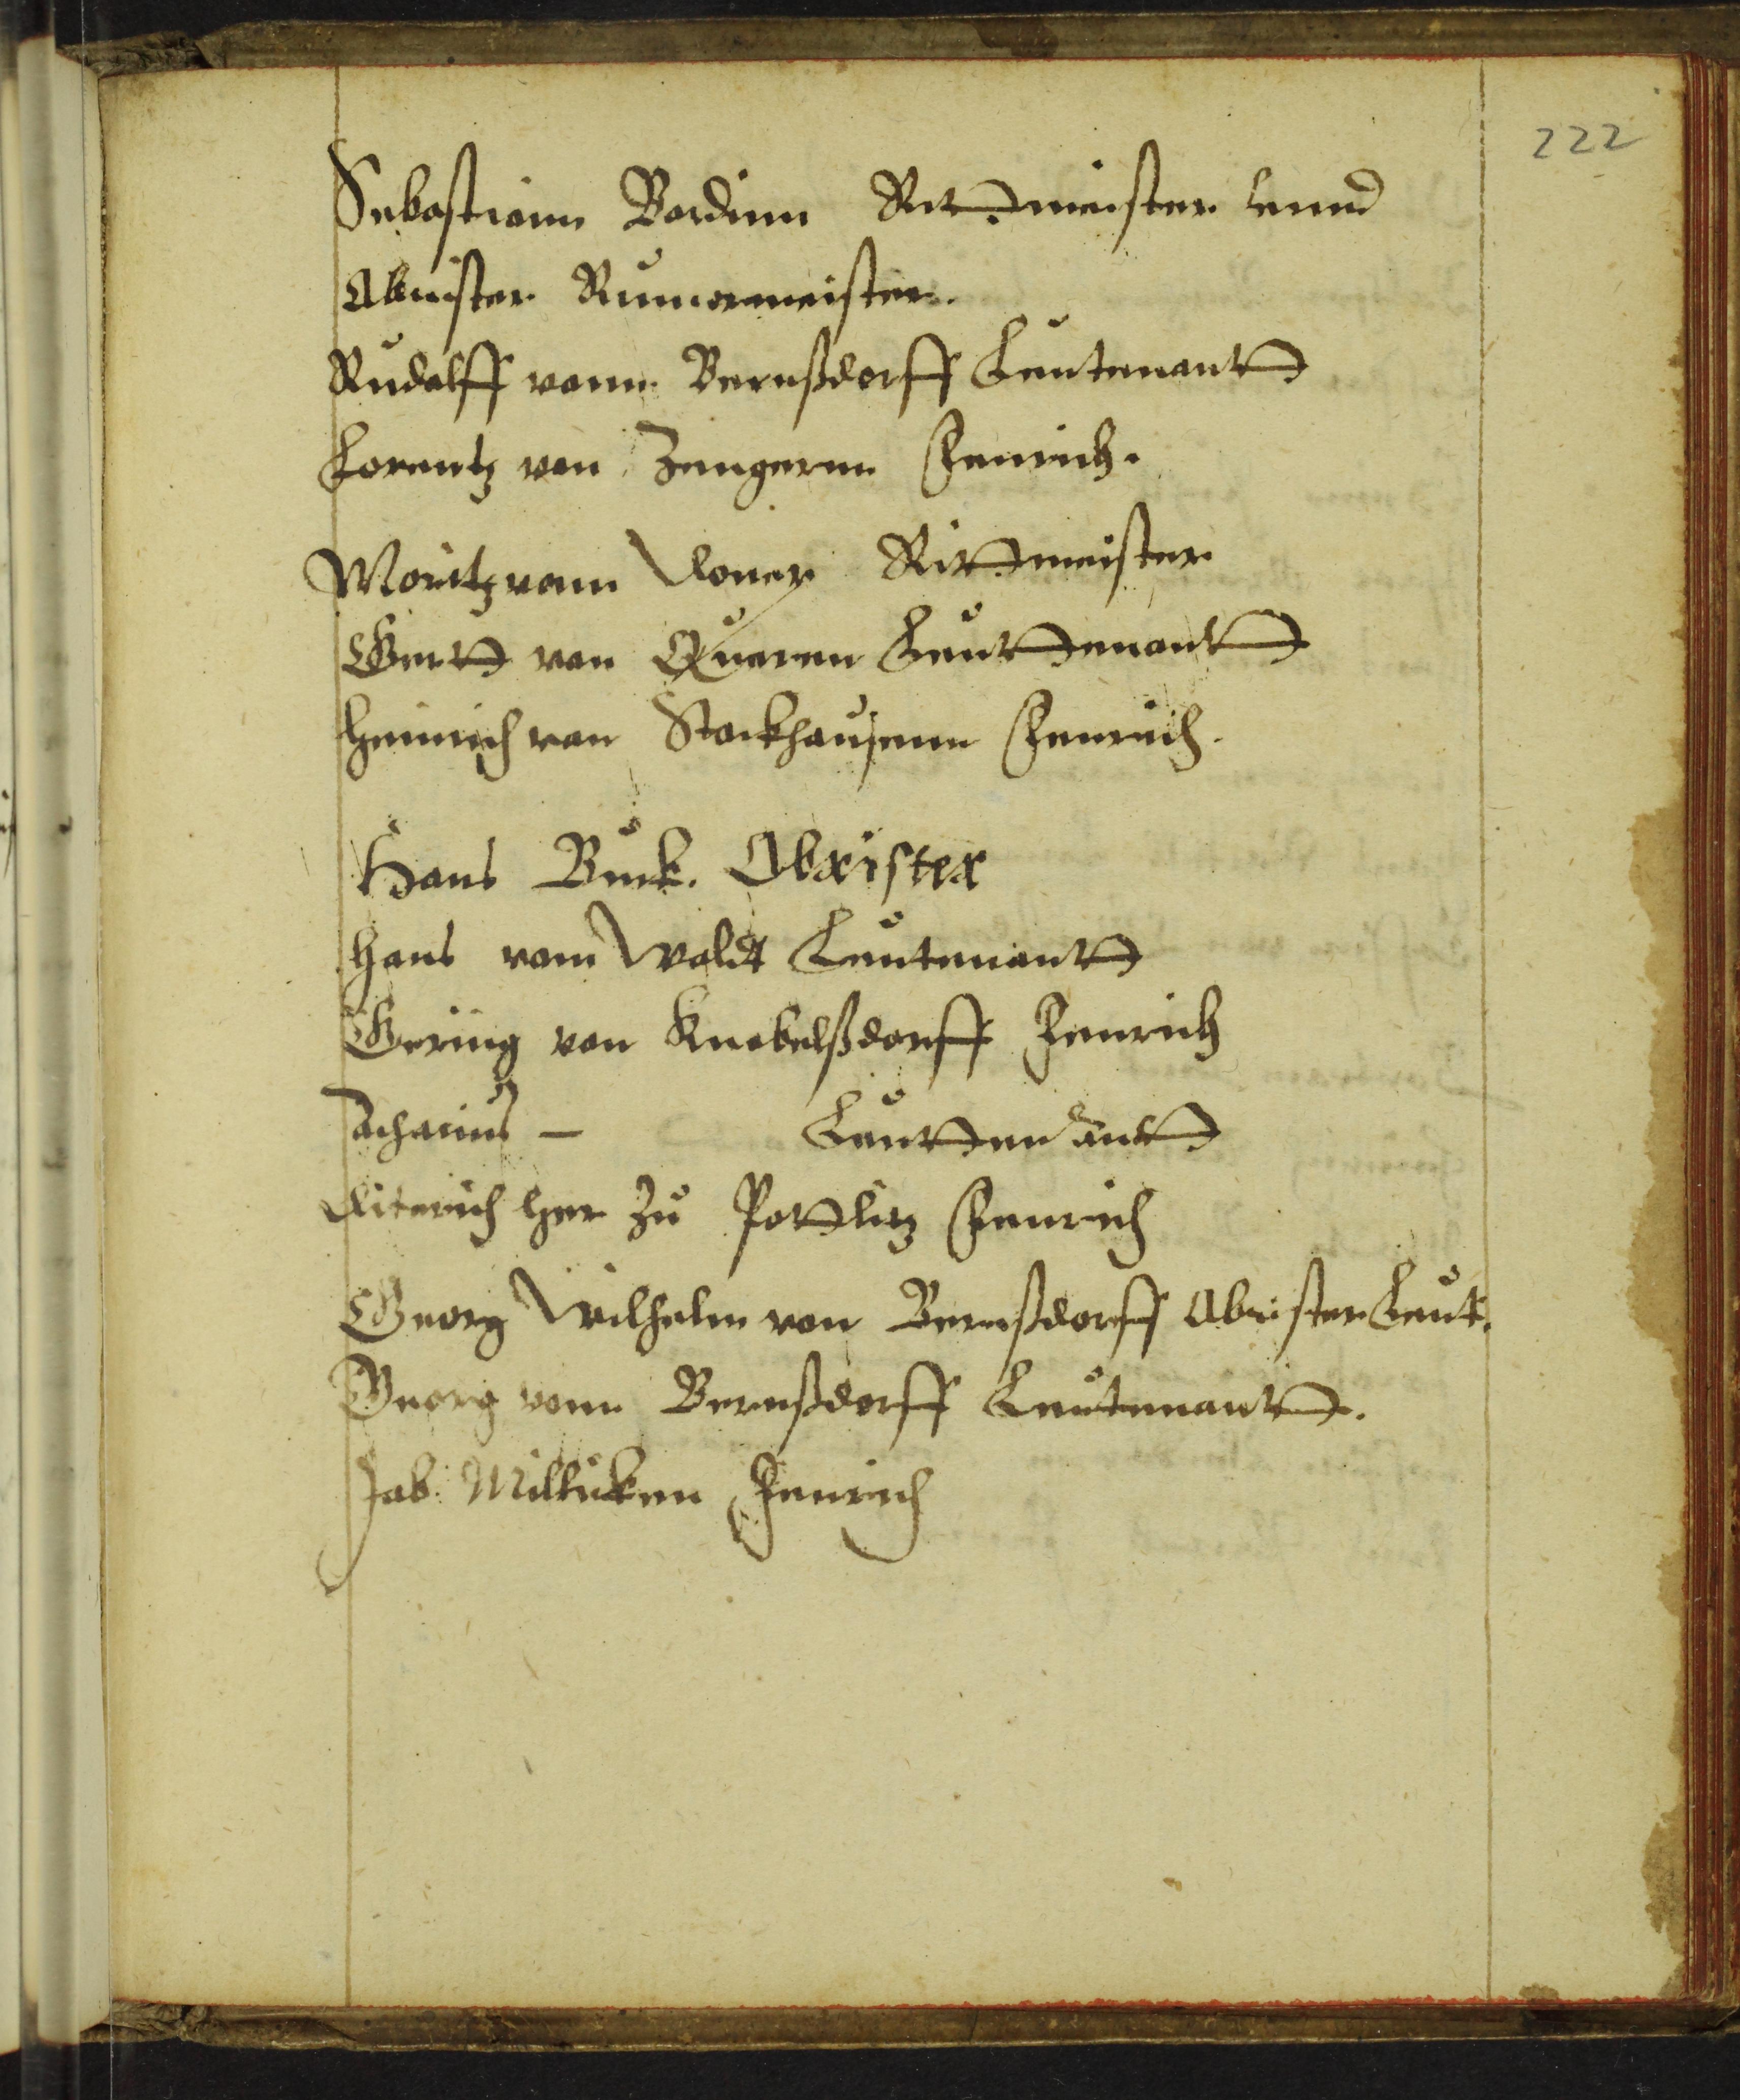 222
Sebastiann Bardinn Rittmeister unnd
Obrister Rumormeister.
Rudolff vonn Bernßdorff Leutenant
Lorentz von Zengeren Fenrich.
Moritz vonn Doner Rittmeister
Gert von Queren Leuttenant
Heinrich von Stockhausenn Fenrich.
Hans Buck. Obrister
Hans vom Waldt Leutenant
Gering von Knobelßdorff Fenrich
Zacharius — Leuttenant
Diterich Her zu Pottlitz Fenrich
Georg Wilhelm von Bernßdorff Obrister Leut.
Georg vonn Bernßdorff Leutenant.
Jab. Millicken Fenrich